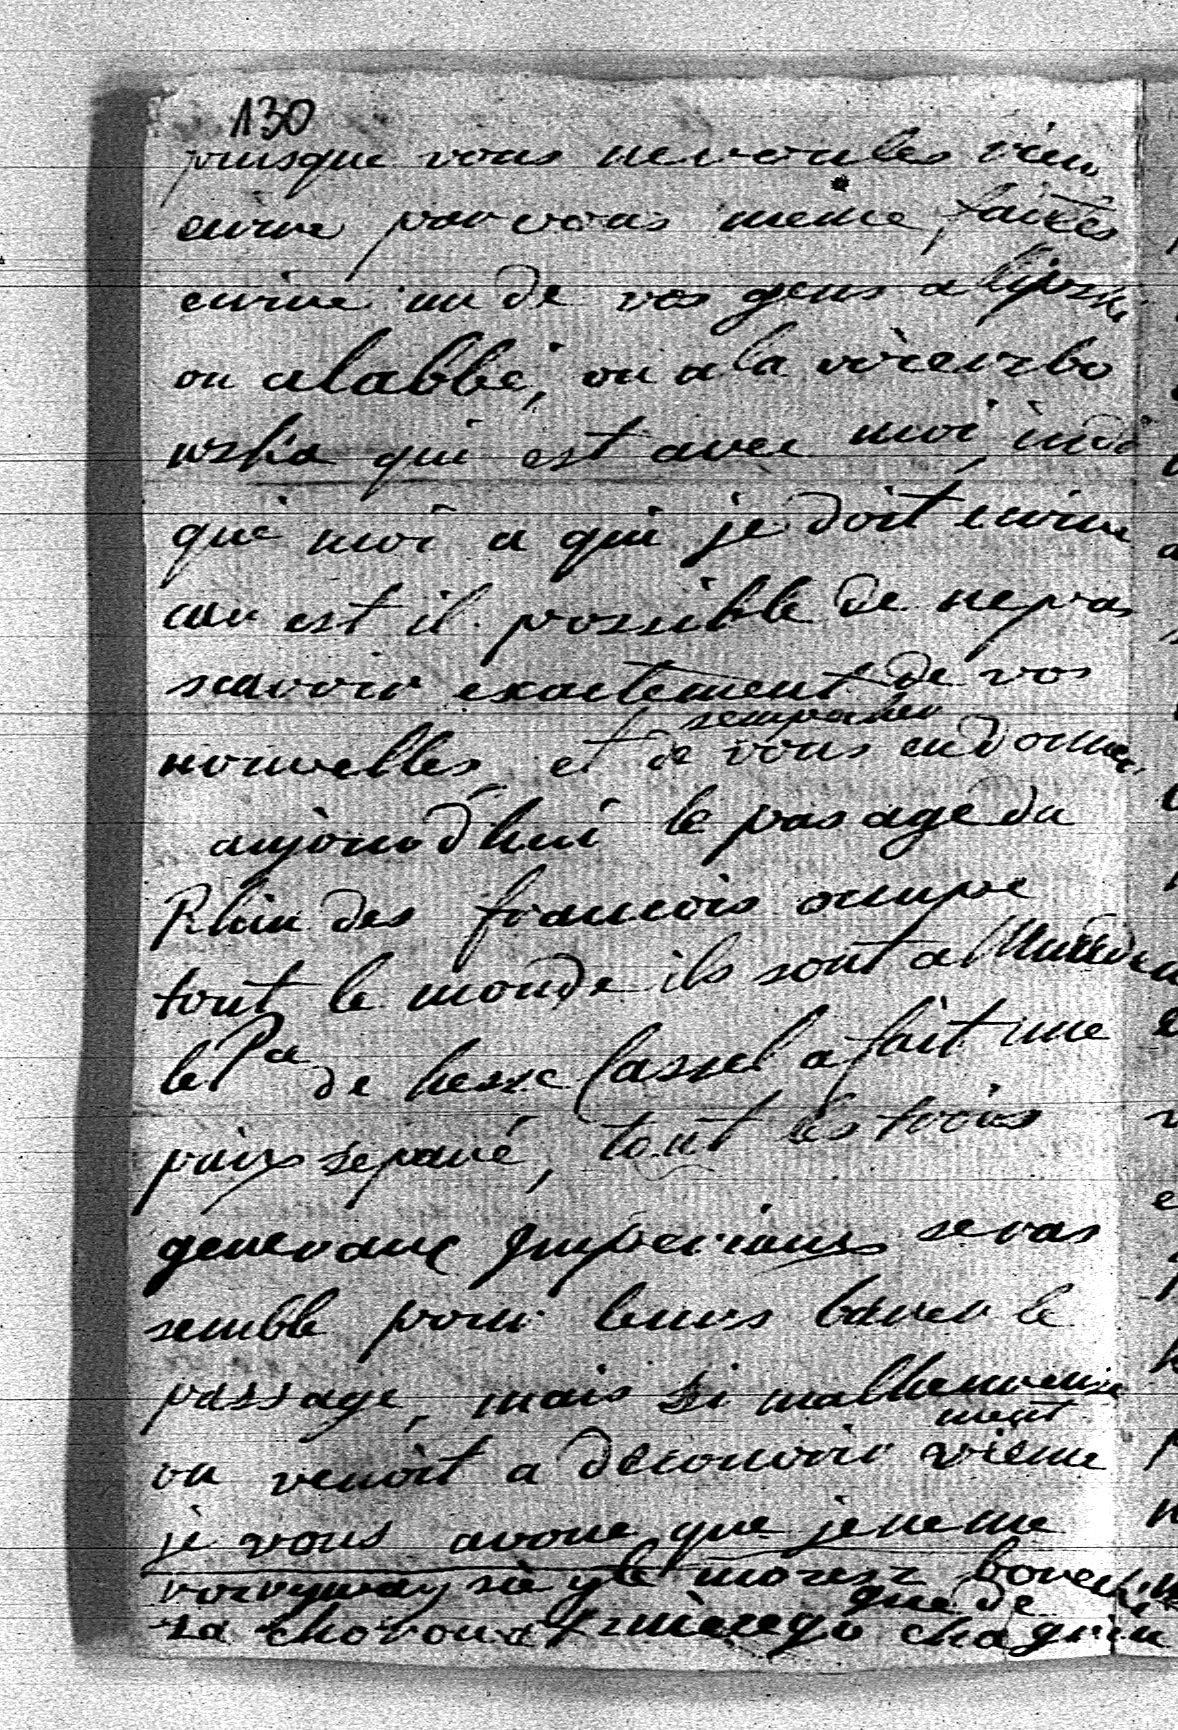 130
puisque vous ne voules rien
ecrire par vous meme, faites
ecrire un de vos gens a lipski
ou a labbé, ou a la wierzbo
wska qui est avec moi indi
qué moi a qui je doit ecrire
car est il possible de ne pas
scavoir exactement de vos
nouvelles et de vous en donner
aujourd'hui le passage du
Rhin des francois occupe
tout le monde ils sont a
le de hesse Cassel a fait une
paix separé, tout les trois
generaux Imperiaux se ras
semble pour leurs barer le
passage, mais si malheureuse
ment
on venoit a decouvrir vienne
je vous avoue que je ne me
sie yle mozesz bo
que de
za chagrin